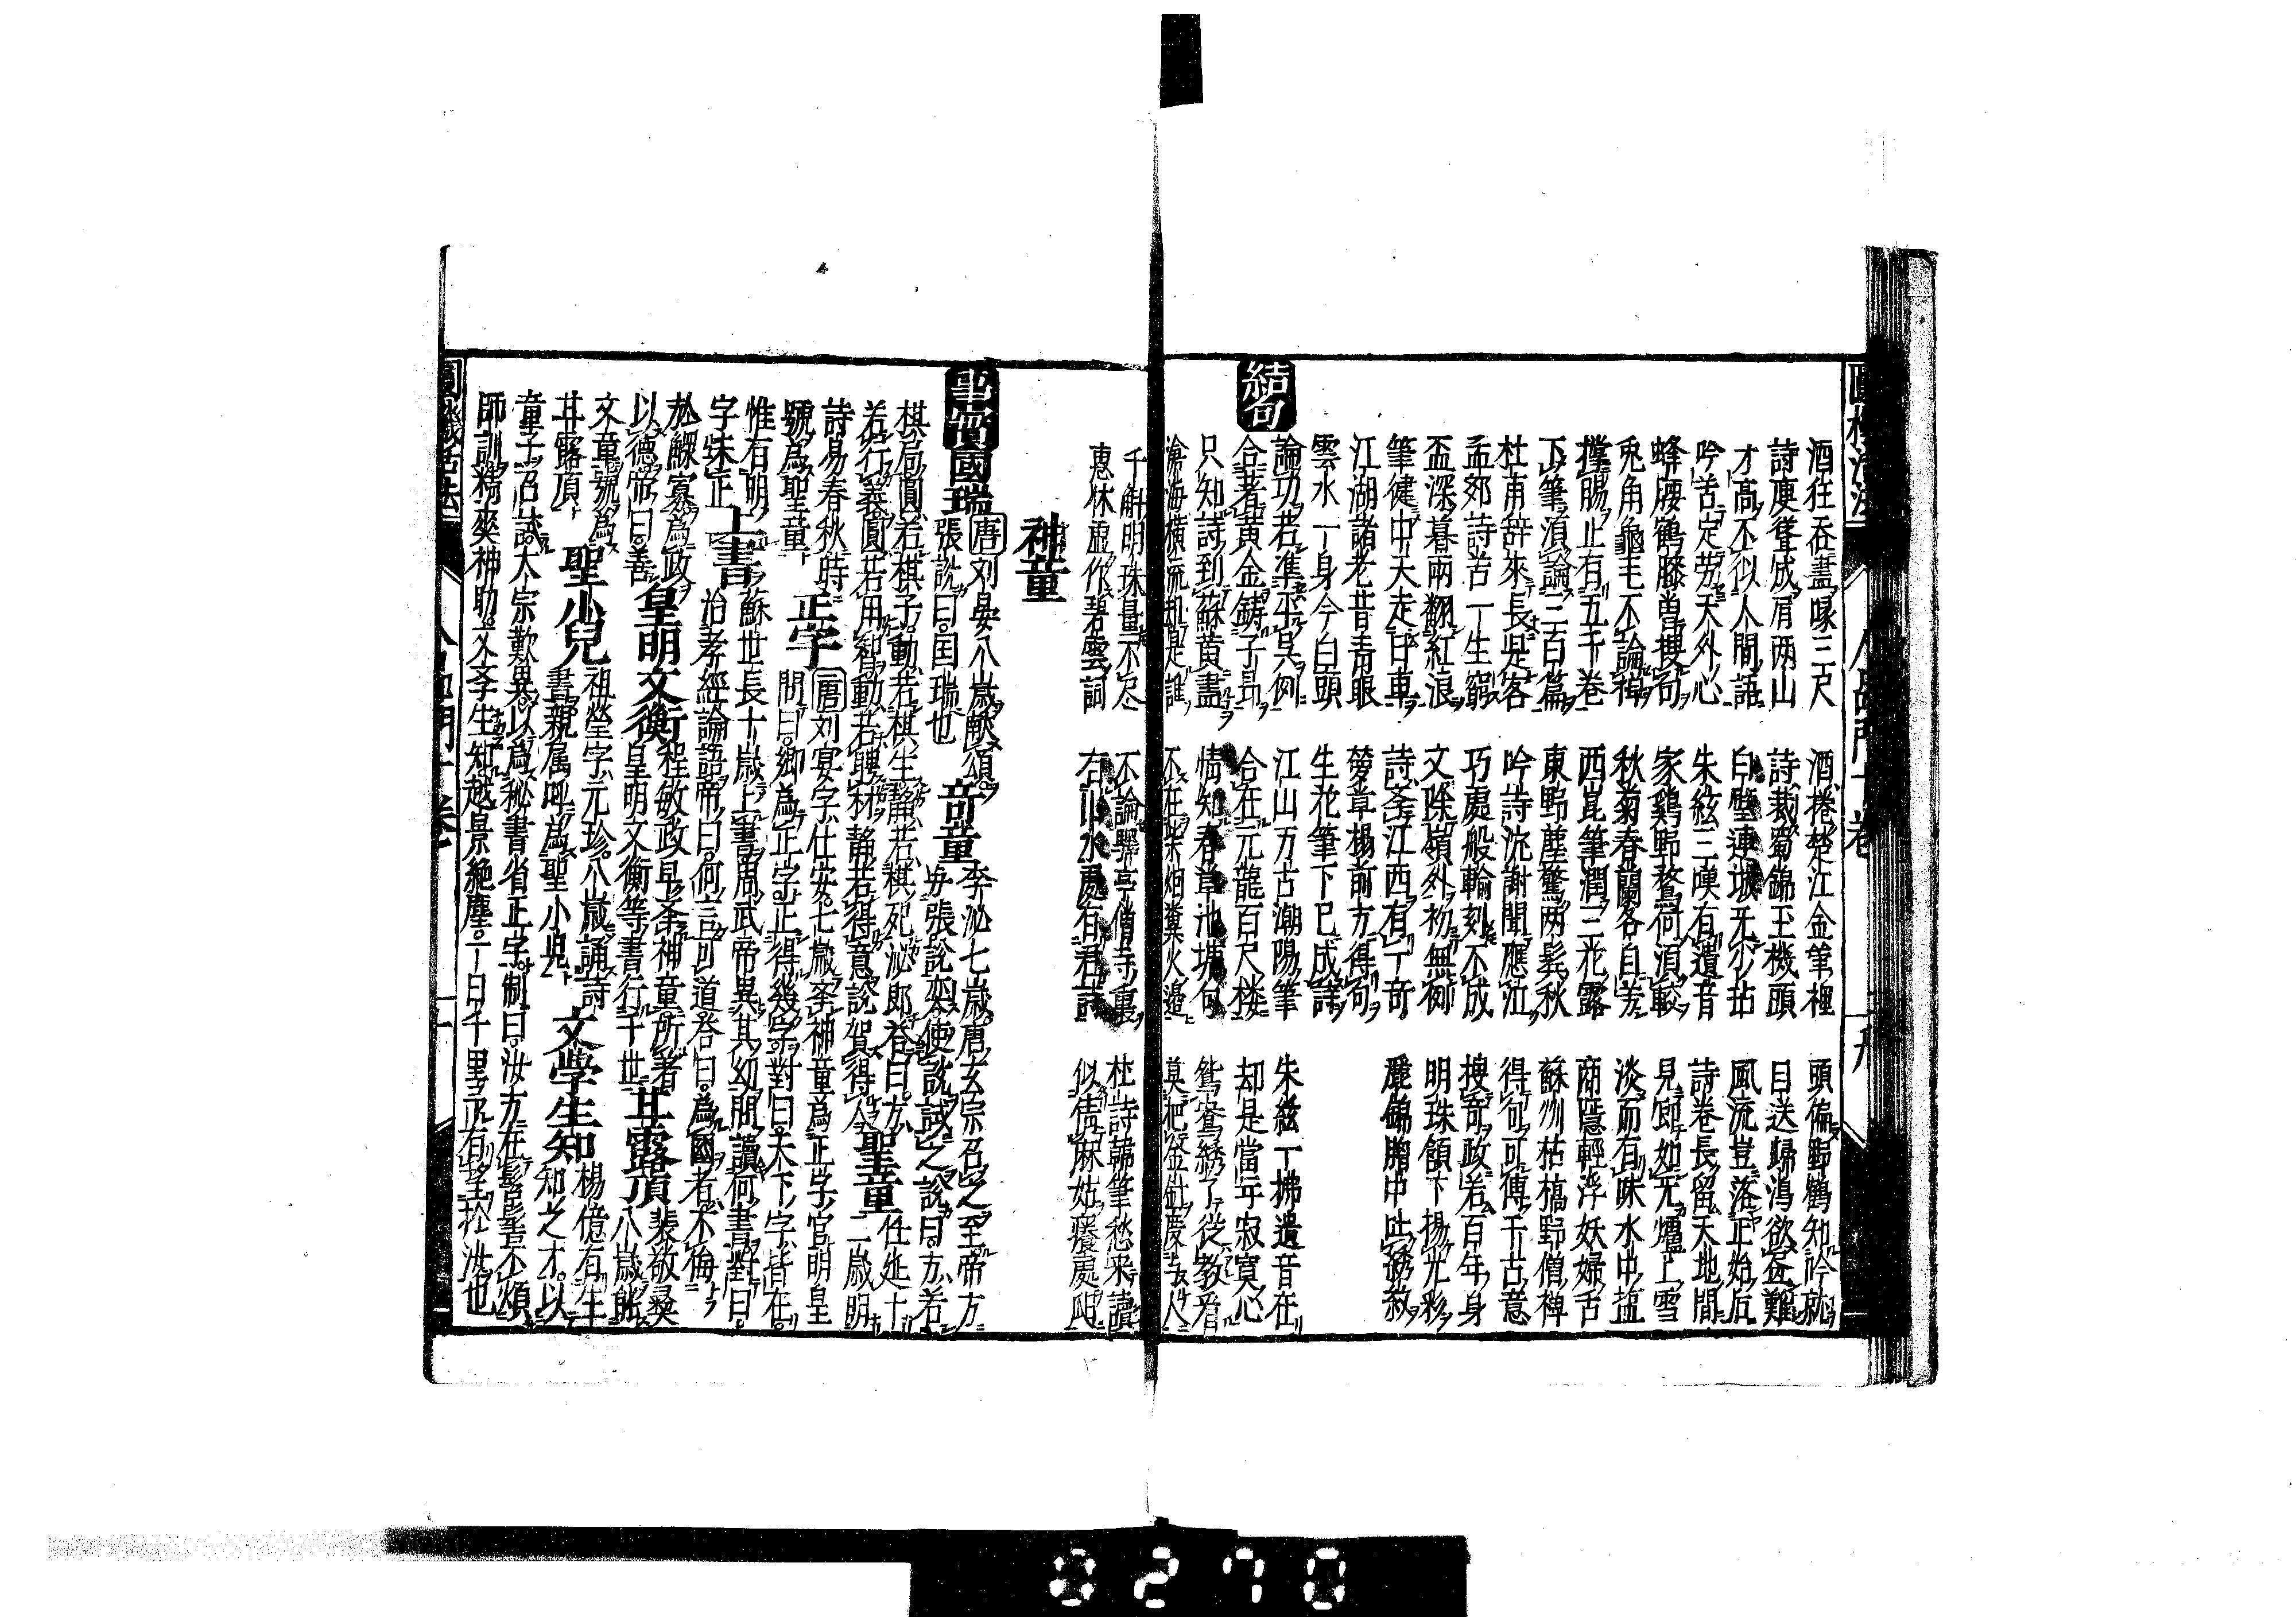 酒狂吞盡啄三尺　酒捲楚江金筆裡　頭偏野鶴知吟就
詩庾聳成肩兩山　詩裁蜀錦玉機頭　目送歸鴻欲
才高不似人間語　白璧連城无少玷　風流豈落正始后
吟苦定勞天外心　朱絃三嘆有遺音　詩卷長留天地間
蜂腰鶴膝曽摸句　家鷄野鶩何須較　見面如元爐上雪
兎角龜毛不論禪　秋菊春蘭各自芳　淡而有味水中塩
撑腸止有五千卷　西崑筆潤三花露　商隠輕浮妖婦舌
下筆須論三百篇　東野塵驚两鬂秋　蘇州枯槁野僧禅
杜甫辞來長是客　吟詩沈謝聞應泣　得句可傳千古意
孟郊詩苦一生窮　巧處般輸刻不成　搜奇政若百年身
盃深暮雨翻紅浪　文除嶺外初無例　明珠頷下揚光彩
筆健中天走日車　詩至江西有一奇　麗錦胸中吐綉紋
江湖諸老昔青眼　夢草榻前方得句
雲水一身今白頭　生花筆下已成詩
論功若準平呉例　江山万古潮陽筆　朱絃一拂遺音在
結句
合著黄金鋳子昻　合在元龍百尺楼　却是當年寂寞心
只知詩到蘇黄盡　情知春草池塘句　鴛鴦綉了從教看
滄海横流却是誰　不在柴烟糞火邉　莫把金針度与人
千斛明珠量不尽　不論驛亭僧寺裏　杜詩韓筆愁来讀
惠休虚作碧雲詞　有山水處有君詩　似倩麻姑癢處爬
神童
事實　國瑞　唐刘晏八歳献頌
張説曰国瑞也　奇童　李泌七歳唐玄宗召之至帝方
与張説奕使説試之説曰方若
棋局圓若棋子動若棋生静若棋死泌即荅曰方
若行義圓若用智動若聘材静若得意説賀得人　聖童　任延十
二歳明
詩易春秋時
號爲聖童　正字　唐刘宴字仕安七歳李神童爲正字官明皇
問曰卿爲正字正得幾字對曰天下字皆在
惟有明
字未正　上書　蘇世長十歳上書周武帝異其幼問讀何書對曰
治孝經論語帝曰何言可道荅曰爲國者不侮
於鰥寡爲政
以德帝曰善　皇明文衡　程敏政早李神童所著
皇明文衡等書行于世　甘露頂　裴敬彛
八歳能
文章號爲
甘露頂　聖小兒　祖瑩字元珍八歳誦詩
書親属呼爲聖小兒　文学生知　楊億有生
知之才以
童子召試大宗歎異以爲秘書省正字制曰汝方在髫齔不煩
師訓精爽神助文李生知越景絶塵一日千里正有望於汝也
0270